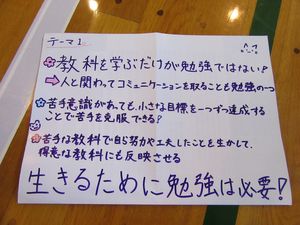 テーマ1
教科を学ぶだけが勉強ではない!
→人と関わってコミュニケーションを取ることも勉強の一つ
苦手意識があっても、小さな目標を一つずつ達成する
ことで苦手を克服できる?
苦手な教科で自ら努力や工夫したことを生かして、
得意な教科にも反映させる
生きるために勉強は必要!